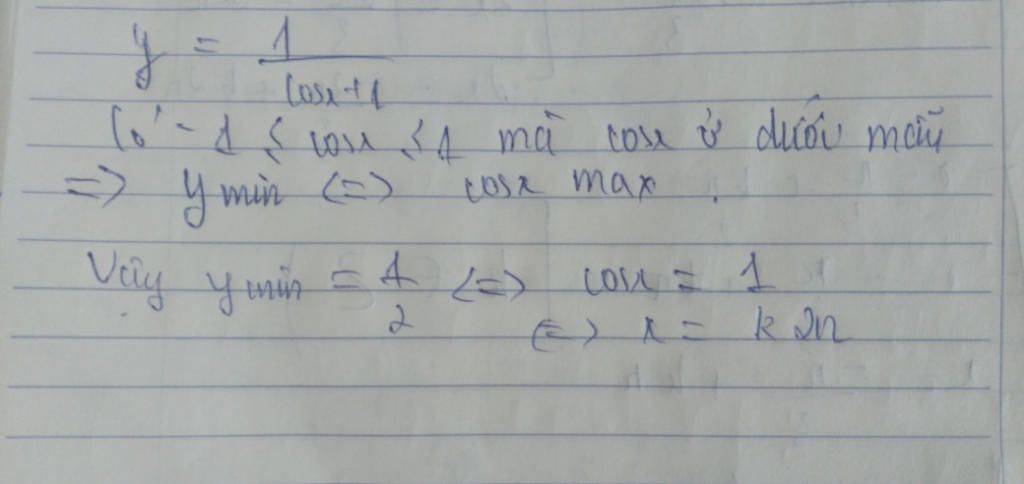 y = 1
cosx+1
Có -1 ≤ cosx ≤ 1 mà cosx ở dưới mẫu
=> y min <=> cosx max.
Vậy y min = 1/2 <=> cosx = 1
<=> x = k2π